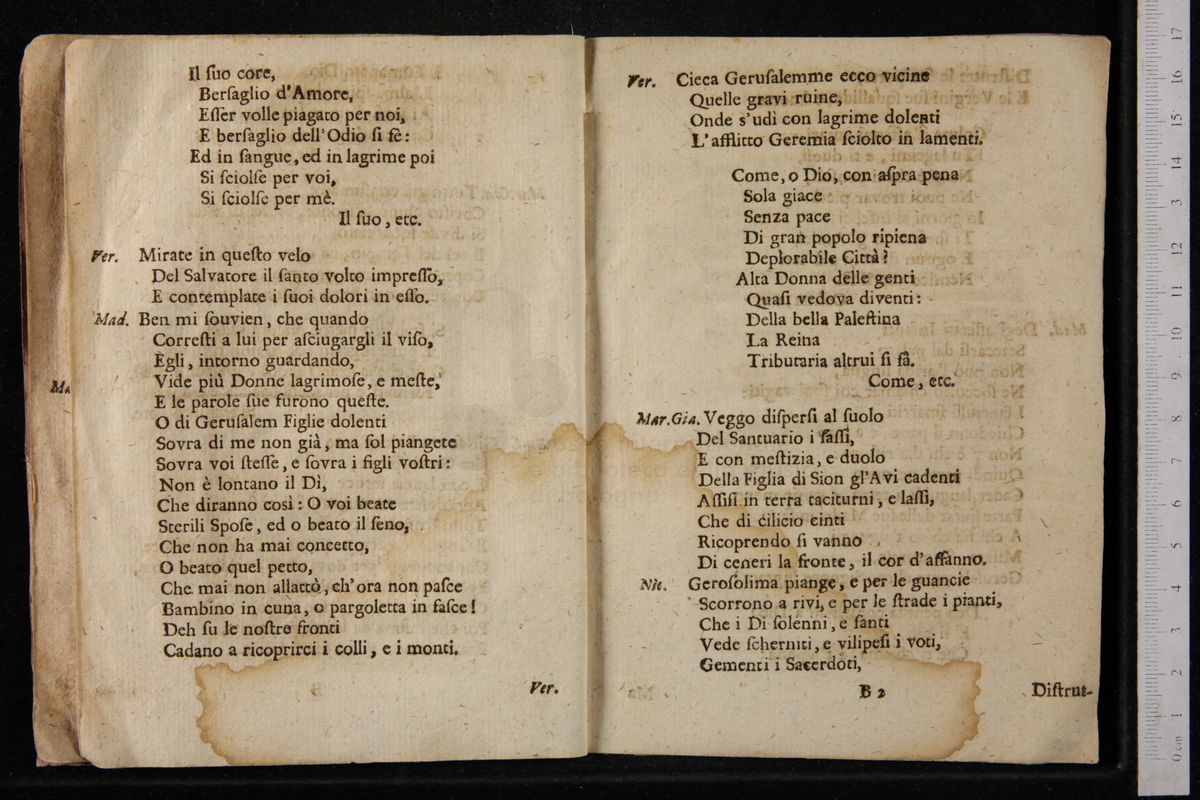 Il ſuo core,
Berſaglio d'Amore,
Eſſer volle piagato per noi,
E berſaglio dell'Odio ſi fè:
Ed in ſangue, ed in lagrime poi
Si ſciolſe per voi,
Si ſciolſe per mè.
Il ſuo, etc.
Ver. Mirate in queſto velo
Del Salvatore il ſanto volto impreſſo,
E contemplate i ſuoi dolori in eſſo.
Mad. Ben mi ſouvien, che quando
Correſti a lui per aſciugargli il viſo,
Egli, intorno guardando,
Vide più Donne lagrimoſe, e meſte,
E le parole ſue furono queſte.
O di Geruſalem Figlie dolenti
Sovra di me non già, ma ſol piangete
Sovra voi ſteſſe, e ſovra i figli voſtri:
Non è lontano il Dì,
Che diranno così: O voi beate
Sterili Spoſe, ed o beato il ſeno,
Che non ha mai concetto,
O beato quel petto,
Che mai non allattò, ch'ora non paſce
Bambino in cuna, o pargoletta in faſce!
Deh ſu le noſtre fronti
Cadano a ricoprirci i colli, e i monti.
Ver.
Ma
Ver. Cieca Geruſalemme ecco vicine
Quelle gravi ruine,
Onde s'udì con lagrime dolenti
L'afflitto Geremia ſciolto in lamenti.
Come, o Dio, con aſpra pena
Sola giace
Senza pace
Di gran popolo ripiena
Deplorabile Città?
Alta Donna delle genti
Quaſi vedova diventi:
Della bella Paleſtina
La Reina
Tributaria altrui ſi fà.
Come, etc.
Mar. Gia. Veggo diſperſi al ſuolo
Del Santuario i ſaſſi,
E con meſtizia, e duolo
Della Figlia di Sion gl'Avi cadenti
Aſſiſi in terra taciturni, e laſſi,
Che di cilicio cinti
Ricoprendo ſi vanno
Di ceneri la fronte, il cor d'affanno.
Nic. Geroſolima piange, e per le guancie
Scorrono a rivi, e per le ſtrade i pianti,
Che i Dì ſolenni, e ſanti
Vede ſcherniti, e vilipeſi i voti,
Gementi i Sacerdoti,
B 2
Diſtrut-